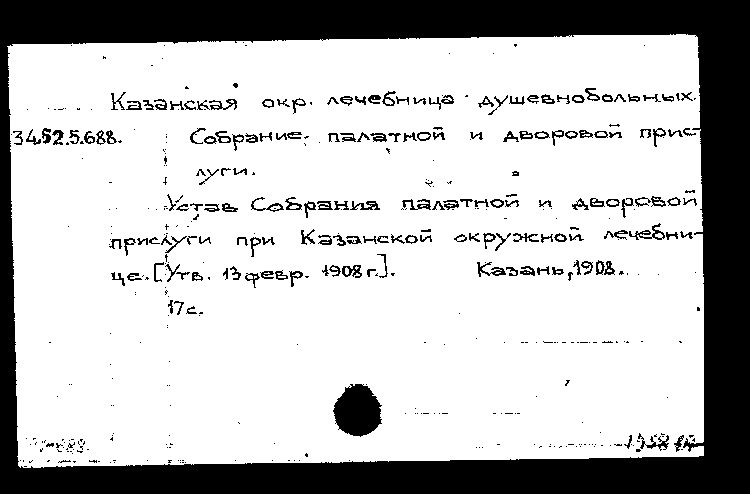 Казанская окр. лечебница душевнобольных.
34.52.5.688. Собрание палатной и дворовой прис-
луги.
Устав Собрания палатной и дворовой
прислуги при Казанской окружной лечебни-
це. [Утв. 13 февр. 1908 г.]. Казань, 1908.
17 с.